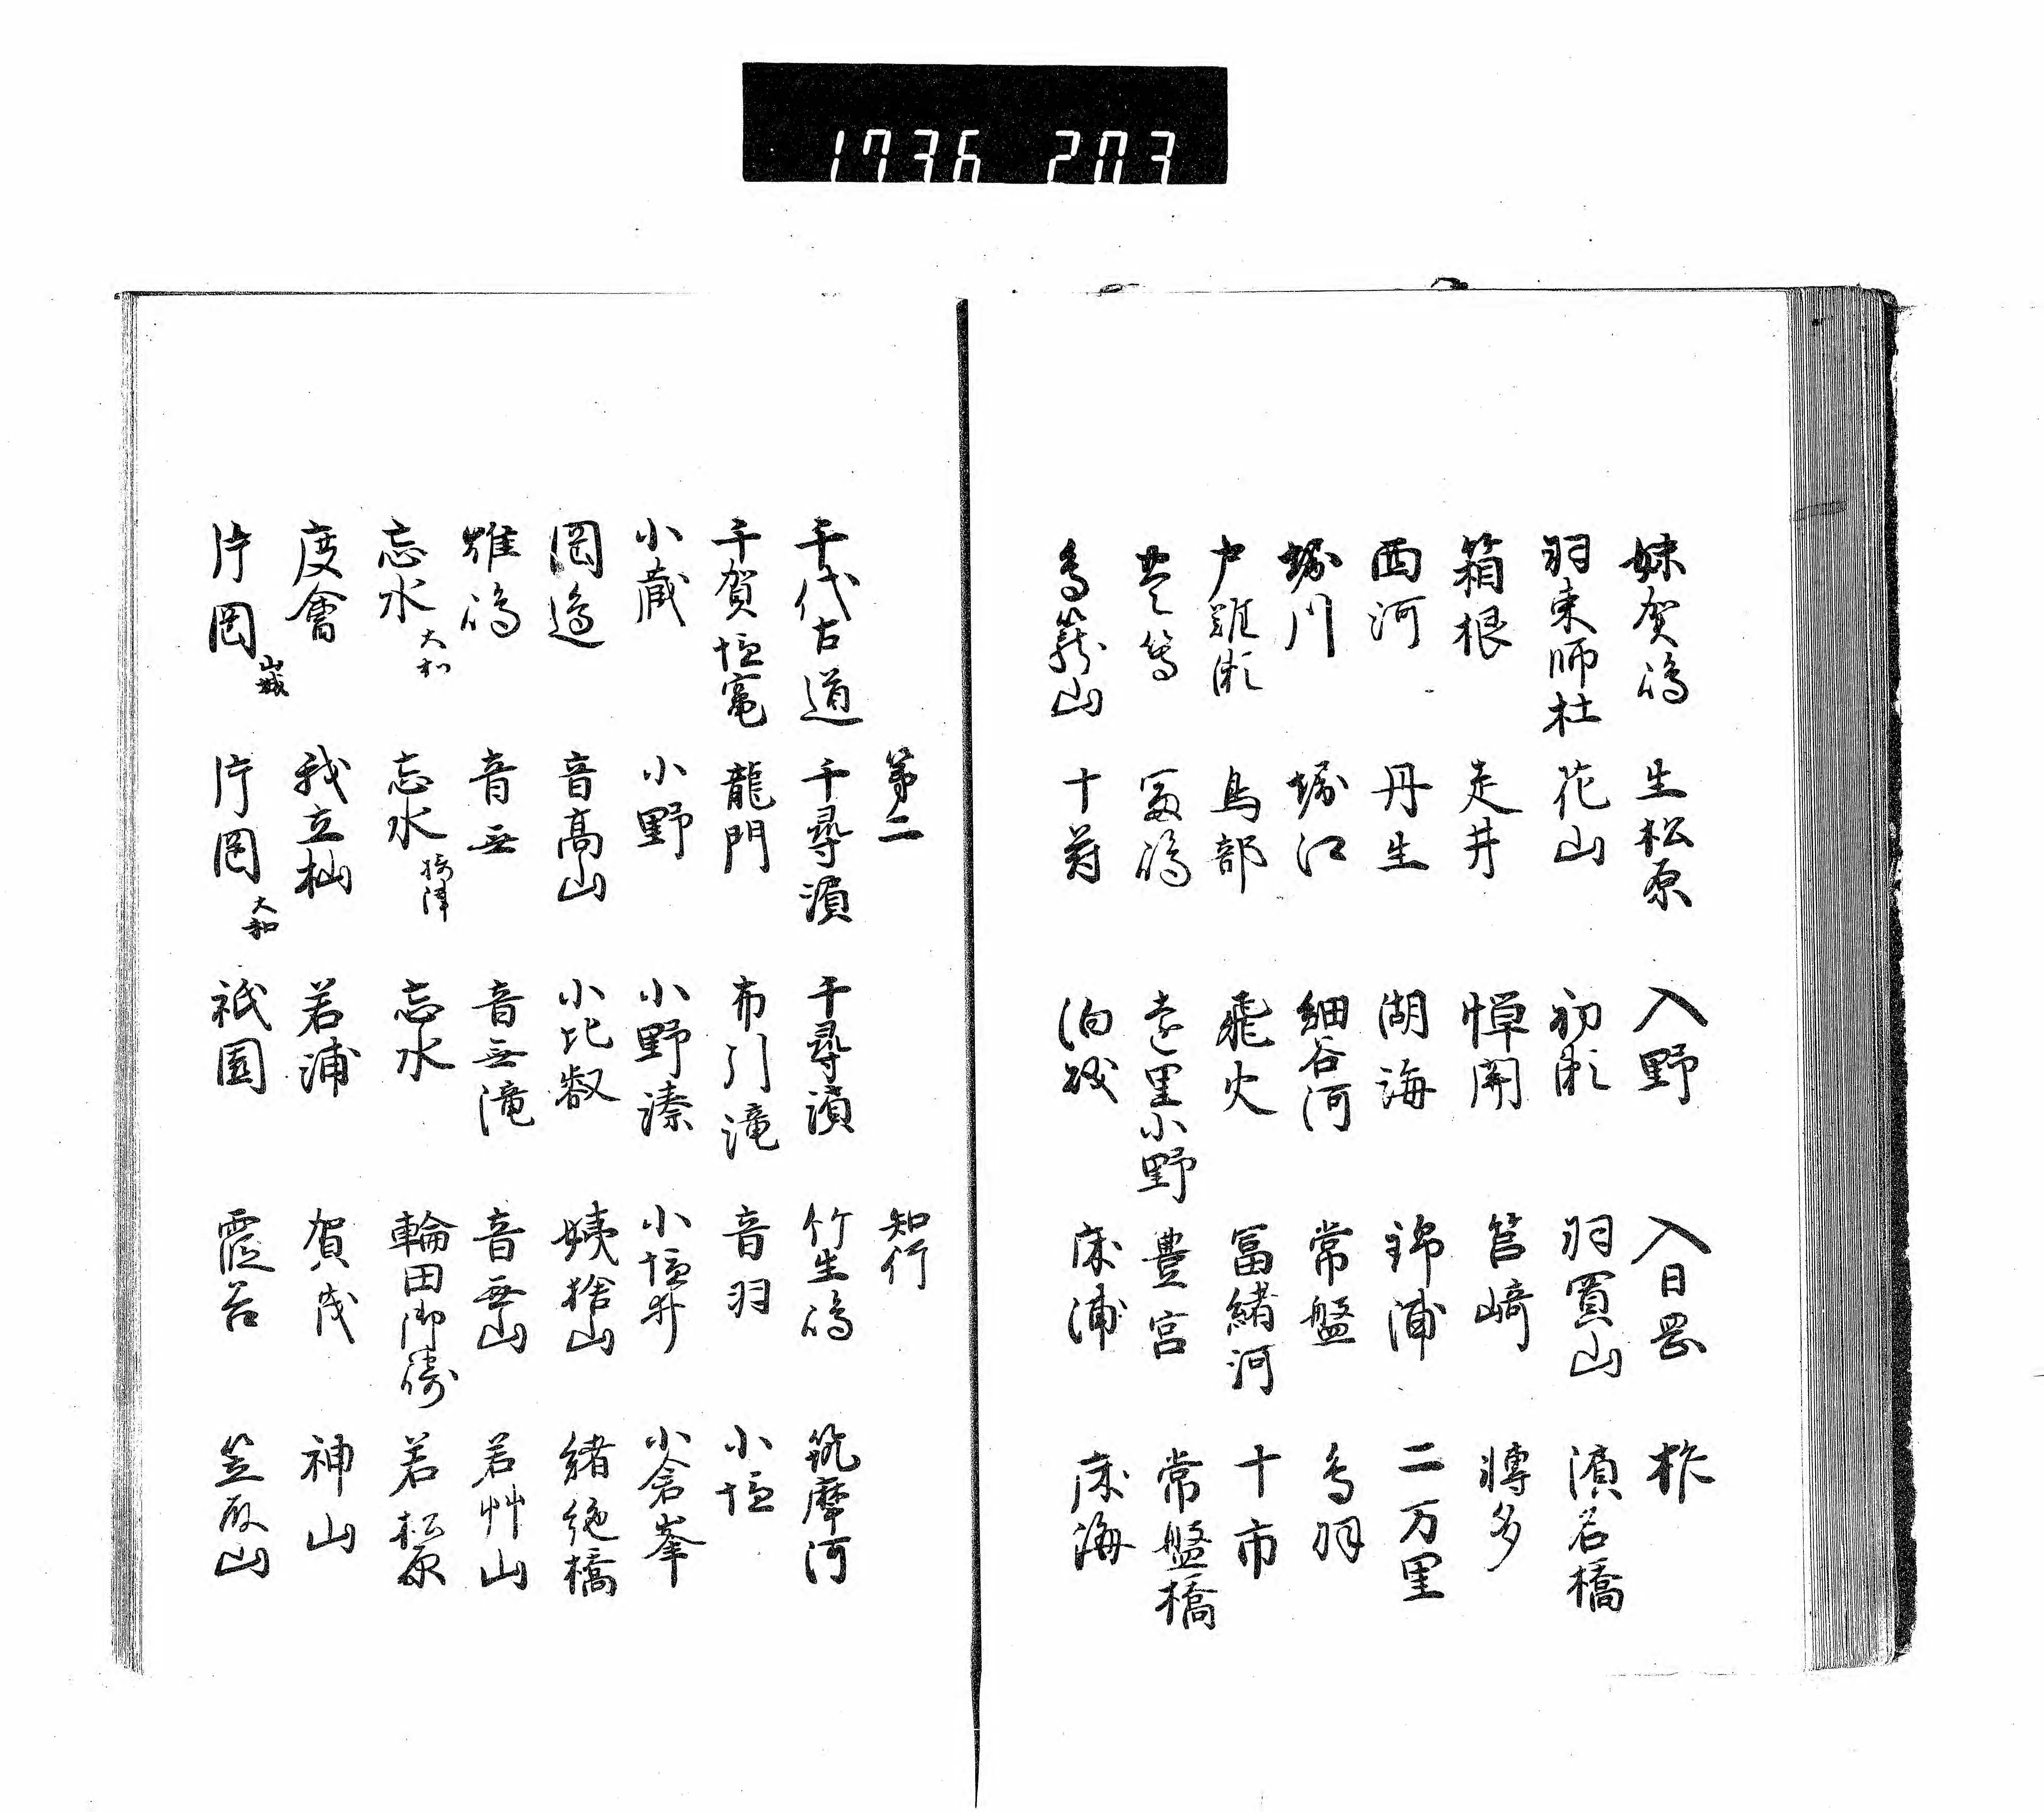 1736 203
妹賀嶋 生松原 入野 入日岡 柞
羽束師杜 花山 初瀬 羽買山 濱名橋
箱根 走井 憚関 筥崎 博多
西河 丹生 湖海 錦浦 二万里
堀川 堀江 細谷河 常盤 鳥羽
戸難瀬 鳥部 飛火 冨緒河 十市
冨嶋 遠里小野 豊宮 常盤橋
鳥籠山 十苻 泊瀬 床浦 床海
第二 知行
千代古道 千尋濱 千尋濱 竹生嶋 筑摩河
千賀塩竃 龍門 布引滝 音羽 小塩
小蔵 小野 小野溱 小塩井 小倉峯
岡邉 音高山 小比叡 姨捨山 緒絶橋
雄嶋 音無 音無滝 音無山 若艸山
忘水 大和 忘水 摂津 忘水 輪田御崎 若松原
度會 我立杣 若浦 賀茂 神山
片岡 山城 片岡 大和 祇園 霞谷 笠取山